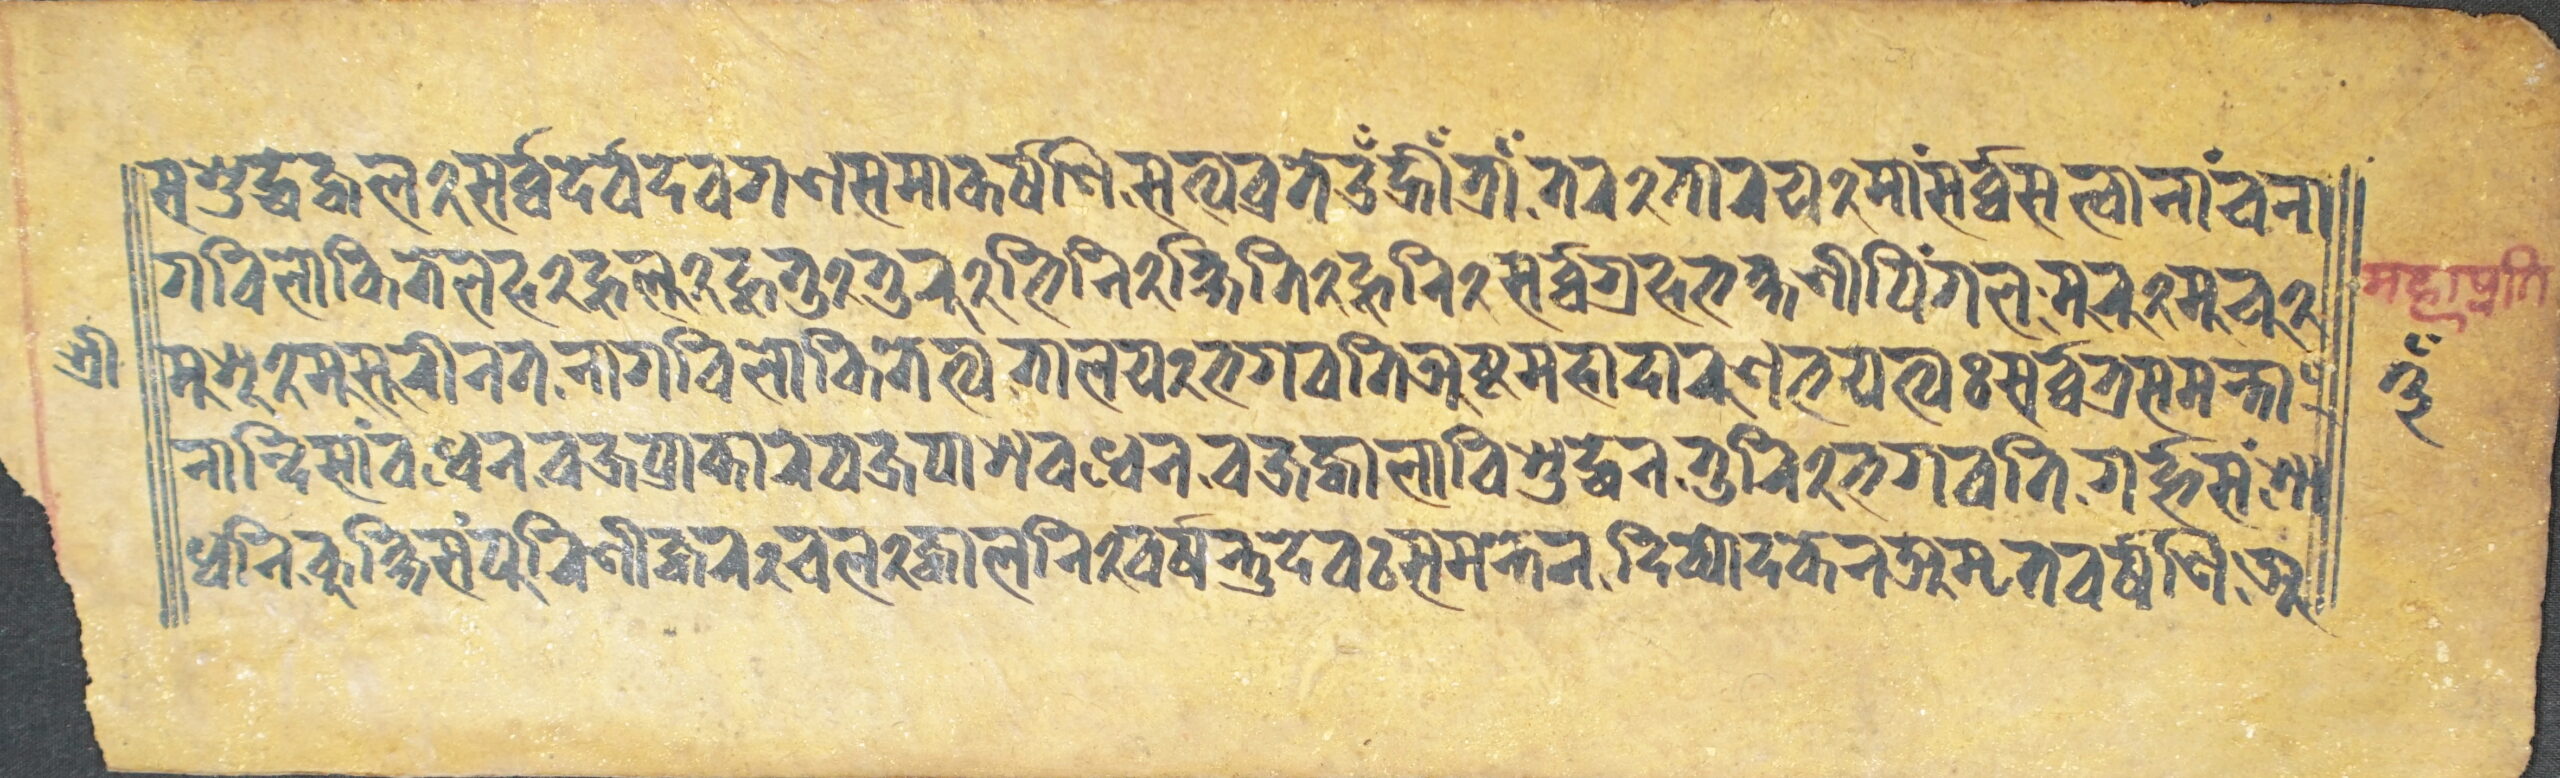 सशुद्धेज्वल२सर्व्वदेवदेवगणसमाकर्षणि.सत्यव्रतेउँह्रीँत्राँ.तर२तारय२मांसर्व्वसत्वानांचना
गविलोकितेलहु२हुलु२हुतु२तुरु२किनि२क्षिति२हुनि२सर्व्वग्रहभक्षणीपिंगल.मुरु२मुचु२
मुमु२मुसुरीनत.नागविलोकितेत्य.तालय२भगवतिअष्टमहादारुणभयत्यःसर्व्वत्रसमन्ता
नान्दिसांवध्वन.वज्रप्राकारवज्रपाशवध्वन.वज्रज्वालाविशुद्धेन.तुरि२भगवति.गर्ह्भसंशो
ध्वनि.कुक्षिसंपुरिणीज्वर२चल२ज्वालनि२वर्षन्तुदेवःसमन्तेन.दिव्योदकेनअमृतवर्षणि.अ
महाप्रति